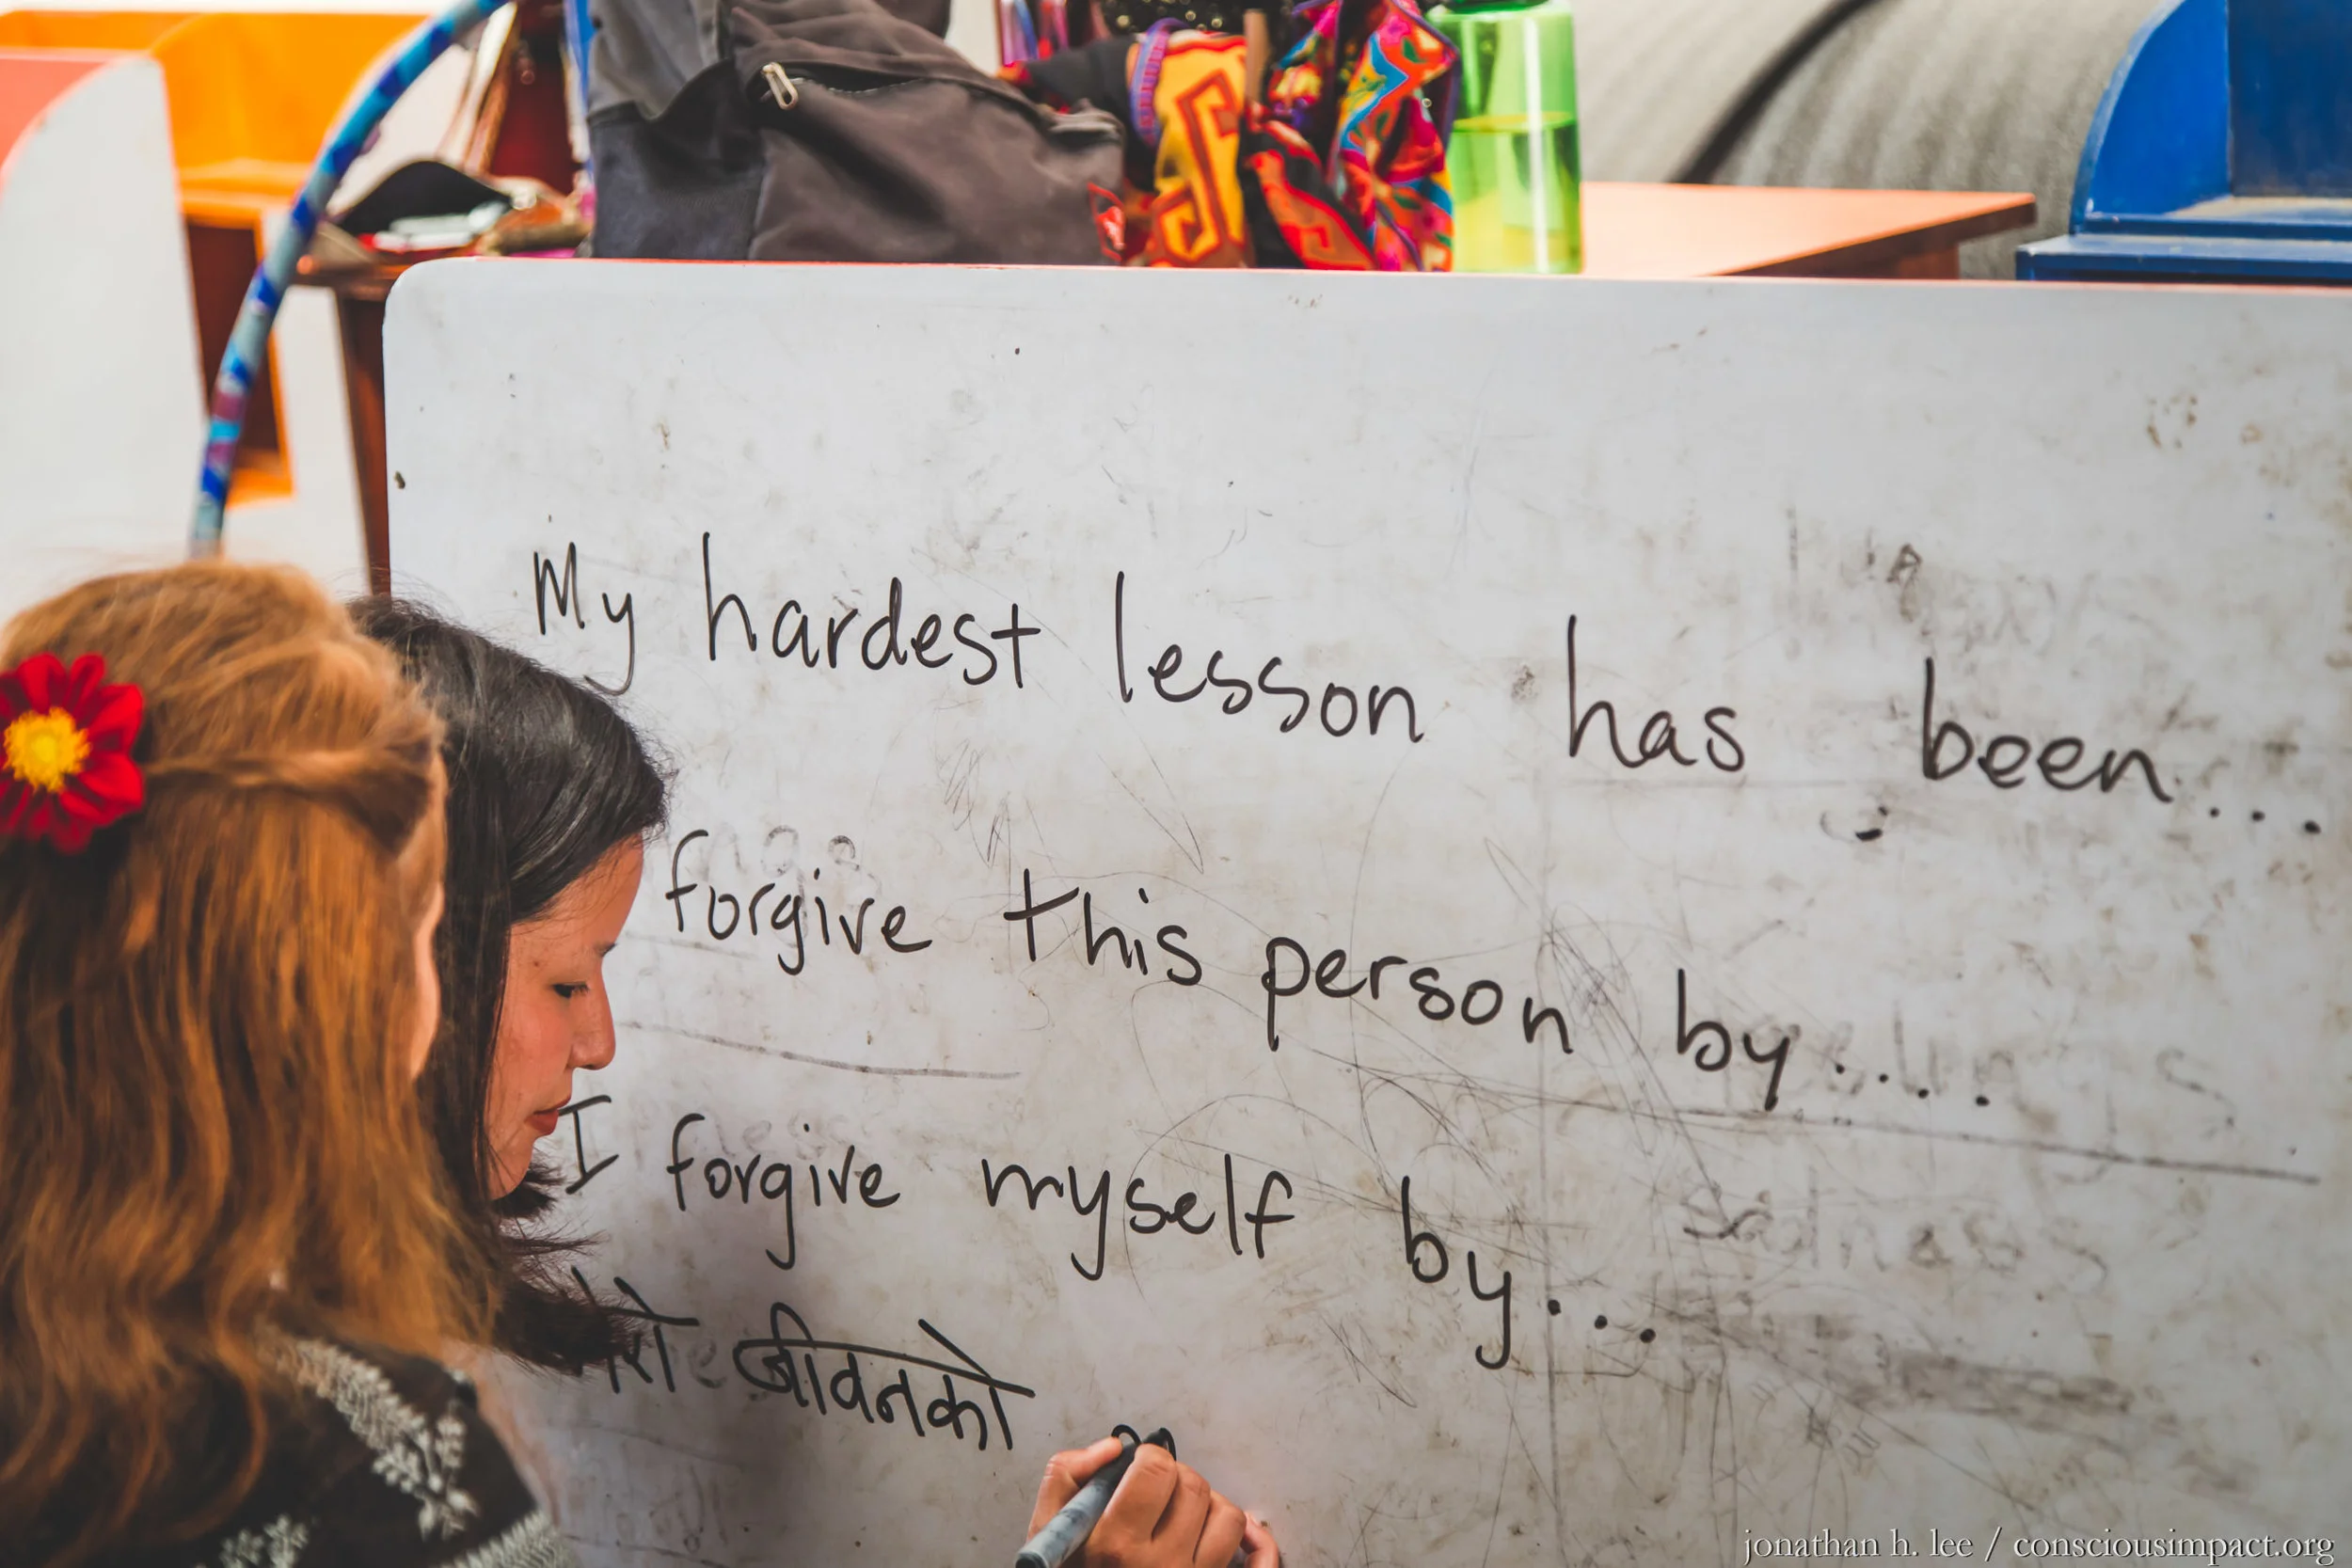 My hardest lesson has been...
forgive this person by....
I forgive myself by...
मेरो जीवनको
jonathan h. lee / consciousimpact.org